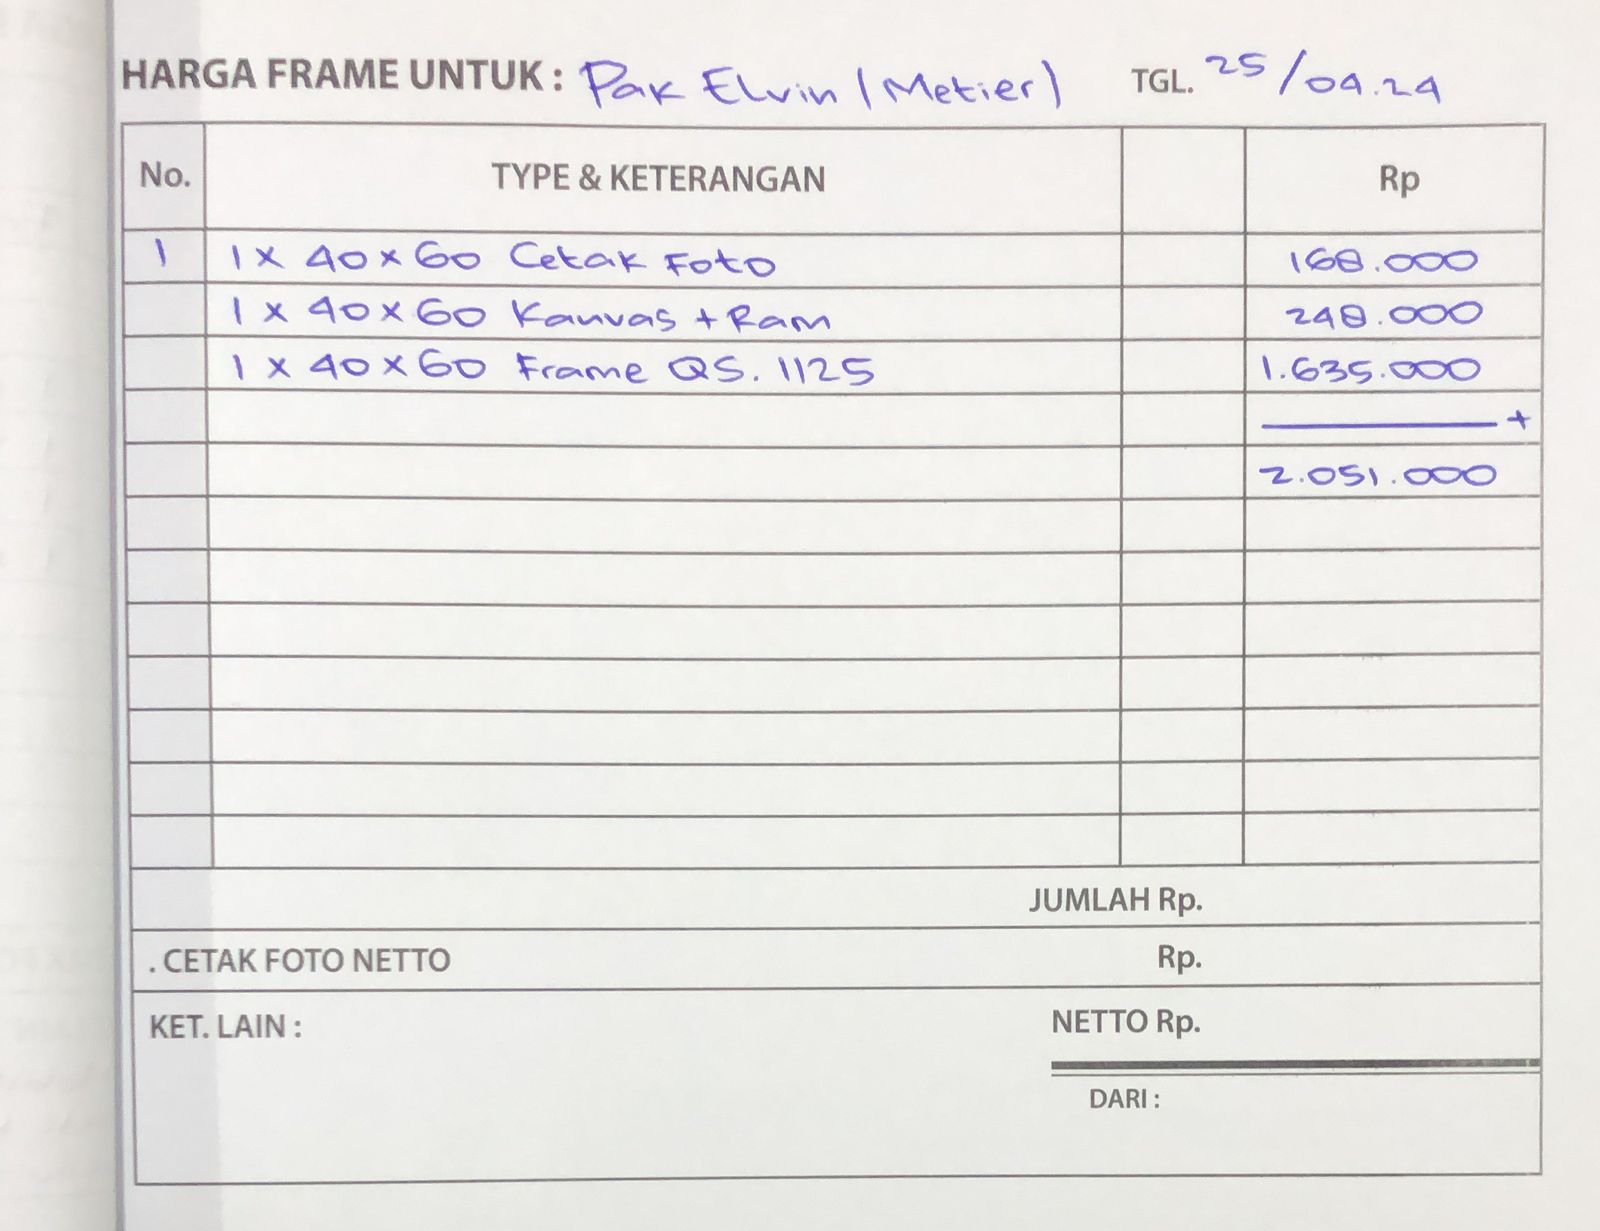 HARGA FRAME UNTUK : Pak Elvin (Metier) TGL. 25/04.24
No. TYPE & KETERANGAN Rp
1 1 x 40 x 60 Cetak Foto 168.000
1 x 40 x 60 Kanvas + Ram 248.000
1 x 40 x 60 Frame QS. 1125 1.635.000
+
2.051.000
JUMLAH Rp.
. CETAK FOTO NETTO Rp.
KET. LAIN : NETTO Rp.
DARI :